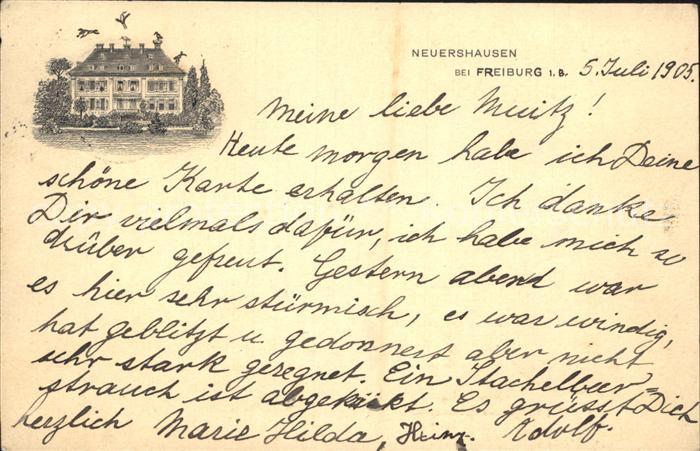 NEUERSHAUSEN
BEI FREIBURG I. B. 5. Juli 1905.
Meine liebe Muitz!
Heute morgen habe ich Deine
schöne Karte erhalten. Ich danke
Dir vielmals dafür, ich habe mich so
drüber gefreut. Gestern abend war
es hier sehr stürmisch, es war windig,
hat geblitzt u. gedonnert aber nicht
sehr stark geregnet. Ein Stachelbeer=
strauch ist abgeknickt. Es grüsst Dich
herzlich Marie Hilda, Heinz. Adolf.